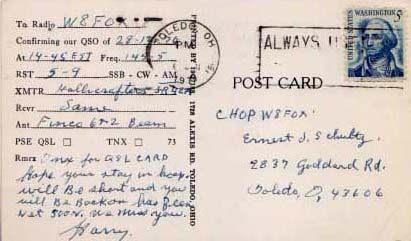 To Radio W8FOX
Confirming our QSO of 28-12-70
At 14-45 EST Freq. 145.5
RST 5-9 SSB - CW - AM
XMTR Hallicrafters
Rcvr Same
Ant Finco 6+2 Beam
PSE QSL TNX 73
Rmrx Tnx for QSL CARD
hope your stay in hosp.
will Be short and you
will Be Back on
Net soon. We miss you.
Harry
TOLEDO, OH
PM
ALWAYS
WASHINGTON
UNITED STATES
5
POST CARD
CHOP W8FOX
Ernest J. Schultz
2837 Goddard Rd.
Toledo, O, 43606
ALEXIS RD. TOLEDO, OHIO